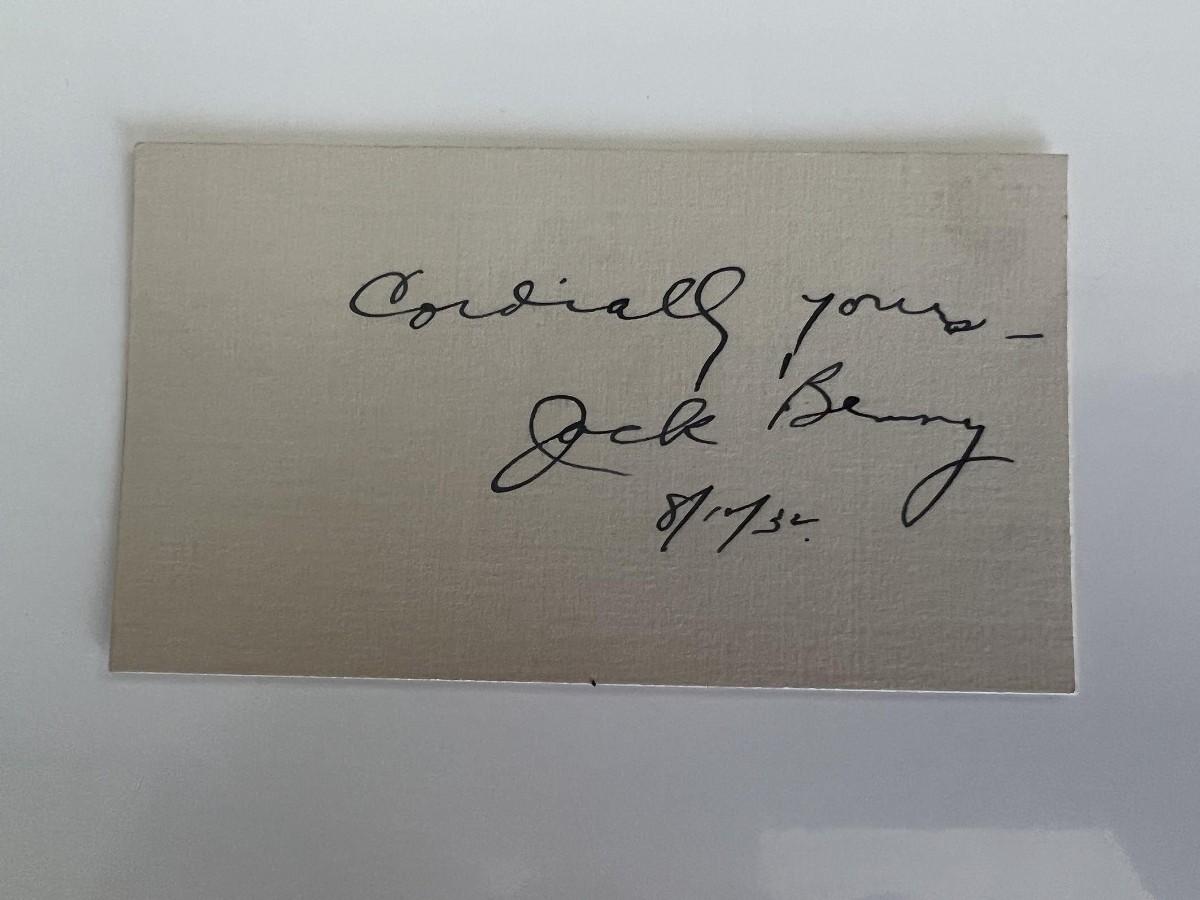 Cordially yours –
Jack Benny
8/10/32.